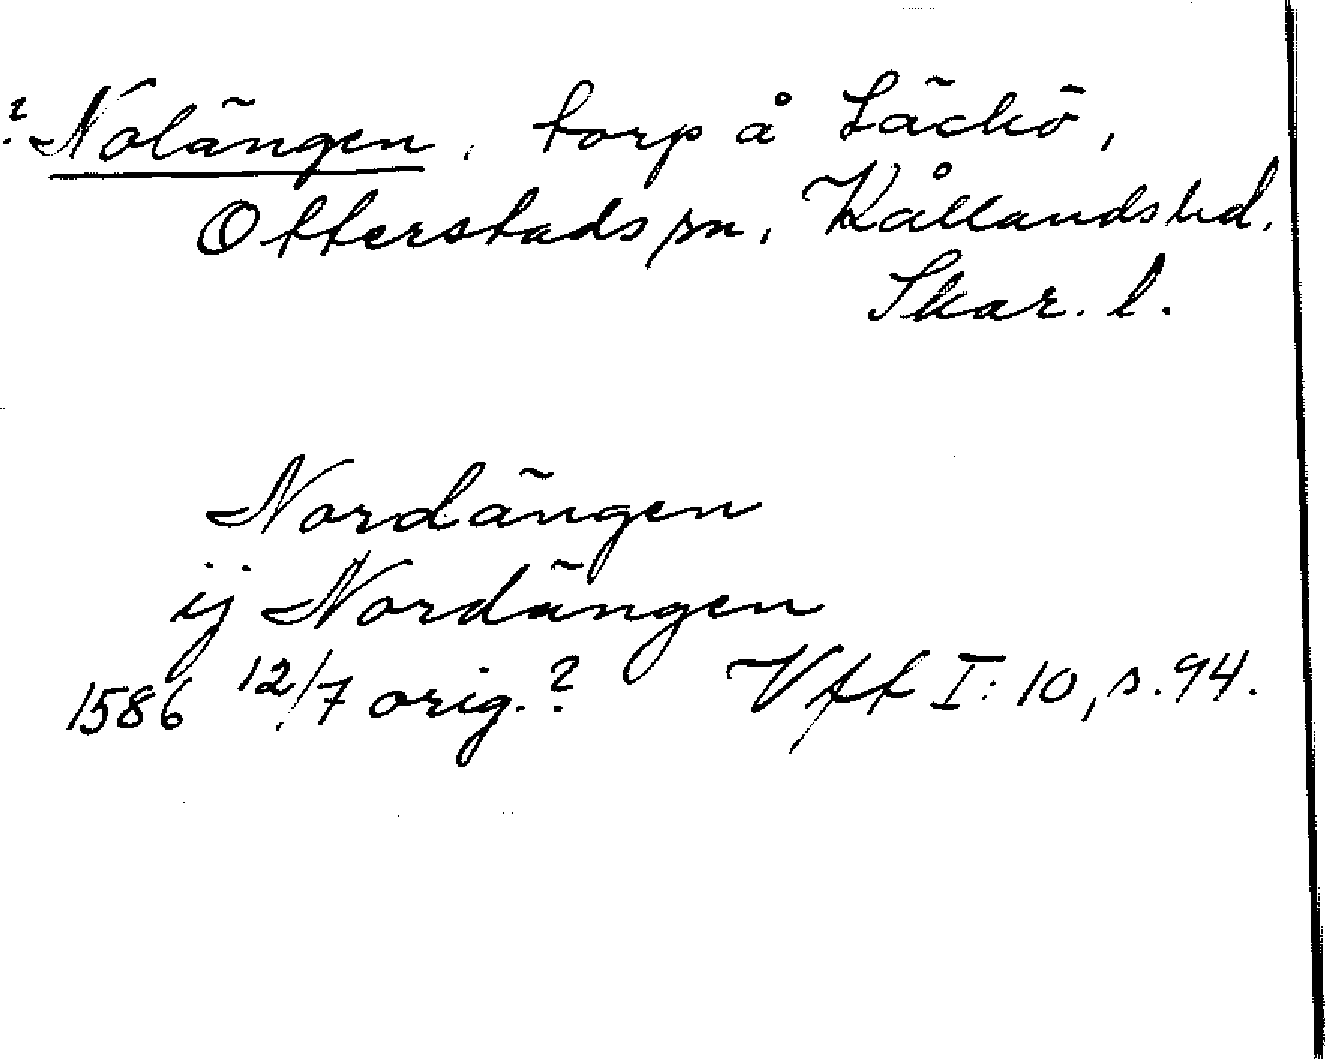 ? Nolängen, torp å Läckö,
Otterstads sn, Kållands hd.
Skar. l.
Nordängen
ij Nordängen
1586 12/7 orig.? Vff I: 10, s. 94.